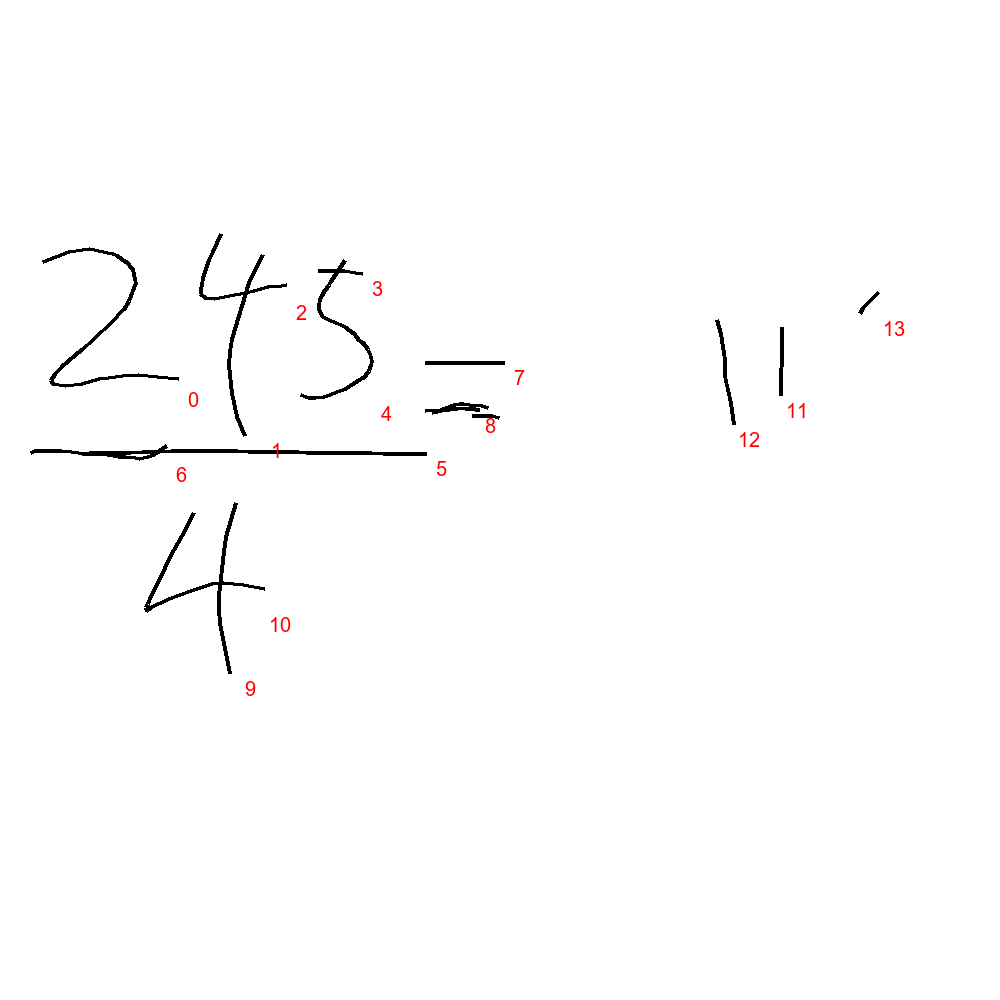 245
=
11
4
0 1 2 3 4 5 6 7 8 9 10 11 12 13